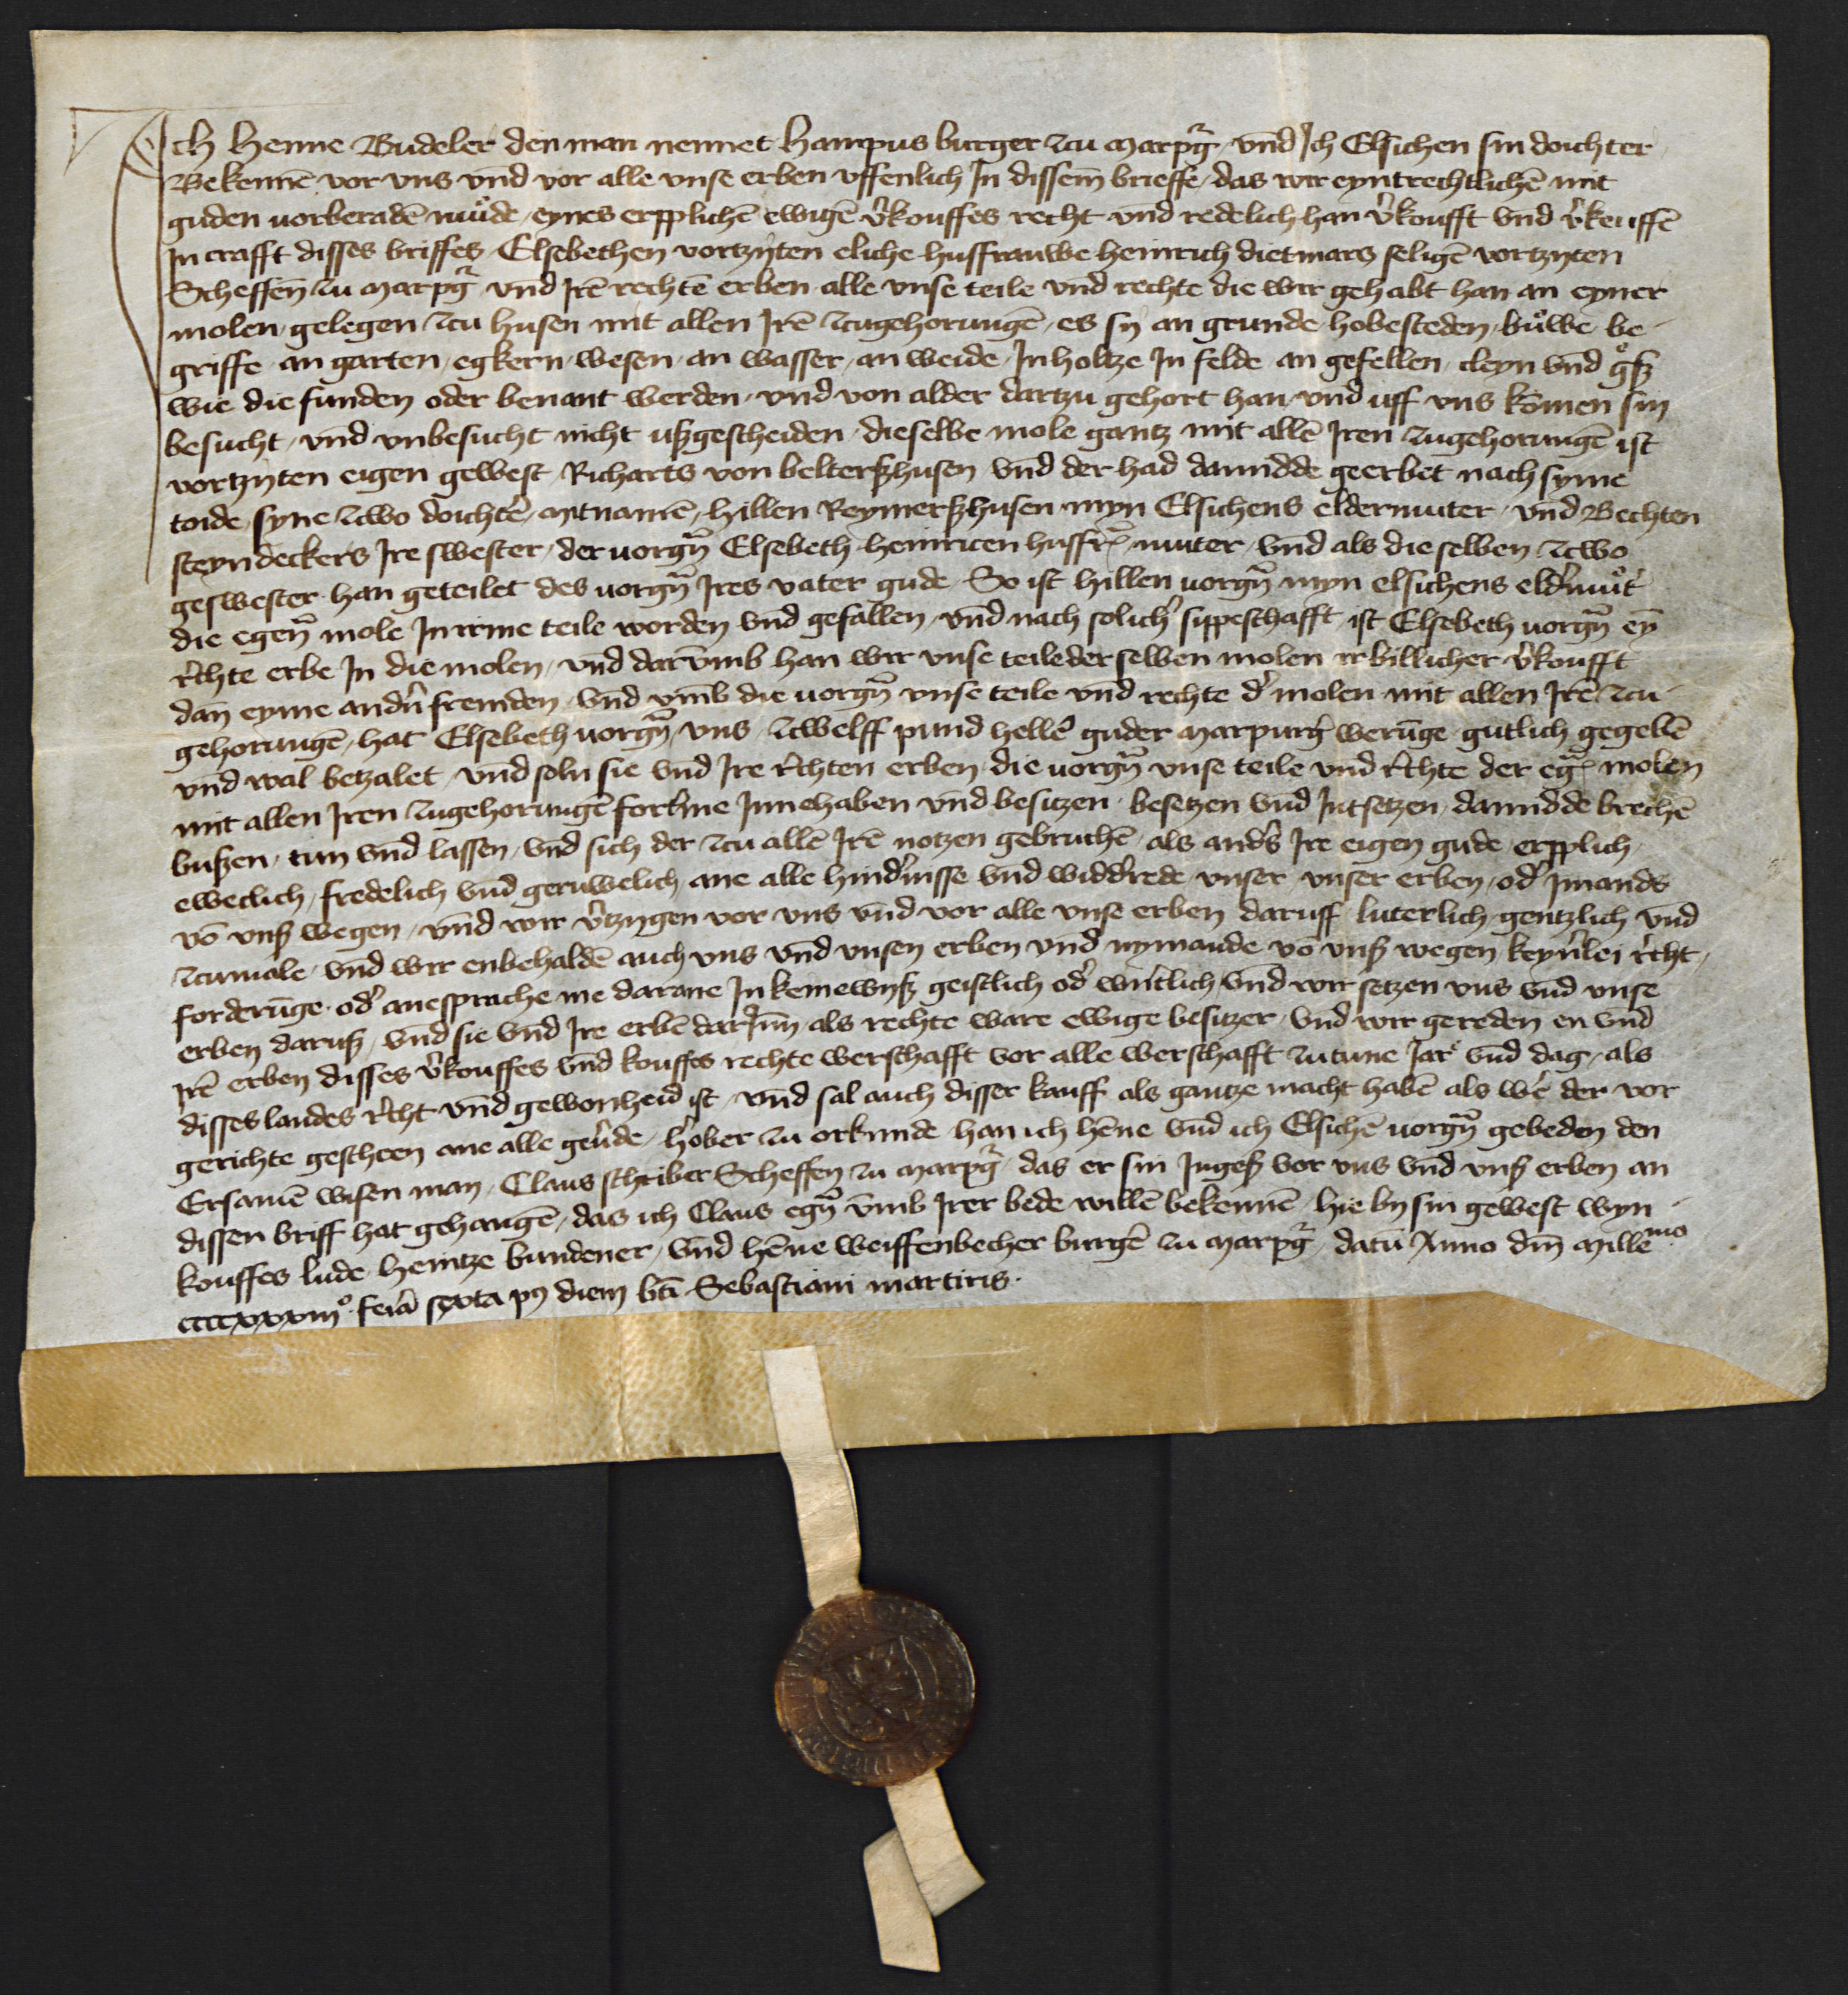 Ich Henne Budeler den man nennet Hampus burger zcu Marpg̃ / vnd Ich Elsichen sin doichter
Bekenne͂ vor vns vnd vor alle vnse erben vffenlich In dissem brieffe / das wir eyntrechtliche͂ mit
guden vorberade͂ muͦde / eynes erpplichē ewigē v̾kouffes recht vnd redelich han v̾koufft vnd v̾keuffē
In crafft disses briffes Elsebethen vortzyten eliche husfrauwe Heinrich dietmars seligē vortzyten
Scheffen zcu Marpg̃ vnd Irē rechtē erben alle vnse teile vnd rechte die wir gehabt han an eyner
molen / gelegen zcu husen mit allen Irē zcugehorungē / es sy an grunde / hobesteden / buͦwe / be-
griffe / an garten / egkern / wesen / an wasser / an weide / In holtze In felde an gefellen / cleyn vnd gͦß
wie die funden oder benant werden / vnd von alder dartzu gehort han / vnd uff vns komen sin
besucht / vnd vnbesucht nicht ußgescheiden / dieselbe mole gantz mit allē Iren zcugehorungē ist
vortzyten eigen gewest / Richarts von beltersßhusen vnd der had damidde geerbet nach syme
toide / syne zcwo doichte᷑ / mitnamē / Hillen Reymerßhusen myn Elsichens eldermuter / vnd Bechten
steyndeckers Ire swester / der uorgn̄ Elsebeth Heinricen husfr͂ / muter / vnd als die selben zcwo
geswester han geteilet des uorgn̄ Ires vater gude / So ist Hillen uorgn̄ myn elsichens eld᷑muͦt᷑
die egen̄ mole In irme teile worden vnd gefallen / vnd nach solich᷑ sippeschafft / ist Elsebeth uorgn̄ ey̅
r᷑chte erbe In die molen / vnd darumb han wir vnse teile der selben molen ir billicher v̾koufft
dan̄ eyme and᷑n fremden / vnd vmb die uorgn̄ vnse teile vnd rechte d᷑ molen mit allen Irē zcu-
gehorungē / hat Elsebeth uorgn̄ / vns / zcwelff pund helle᷑ guder Marpurg᷑ werūge gutlich gegebē
vnd wal betzalet / vnd soln sie vnd Ire r᷑chten erben / die uorgn̄ vnse teile vnd r᷑chte der eg͂ molen
mit allen Iren zcugehorungē fort᷑me Innehaben vnd besitzen / besetzen vnd Intsetzen / damidde brechē
bußen / tun vnd lassen / vnd sich der zcu allē Irē notzen gebruchē / als and᷑s Ire eigen gude / erpplich /
eweclich / fredelich vnd geruwelich ane alle hind᷑nisse vnd widd᷑rede / vnser / vnser erben / od᷑ Imands
vō vnß wegen / vnd wir v̾tzygen vor vns vnd vor alle vnse erben daruff luterlich gentzlich vnd
zcumale / vnd wir enbehaldē auch vns vnd vnsen erben vnd nymande vō vnß wegen / keyn᷑lei r᷑cht /
forderūge / od᷑ anesprache me darane In keinewyß geistlich od᷑ w᷑ntlich vnd wir setzen vns vnd vnse
erben daruß / vnd sie vnd Ire erbē darInn̄ als rechte ware ewige besitzer / vnd wir gereden en vnd
Irē erben disses v̾kouffes vnd kouffes rechte werschafft vor alle werschafft zcu tune Jar vnd dag / als
disses landes r᷑cht vnd gewonheid ist / vnd sal auch disser kauff als gantze macht habē als we᷑ der vor
gerichte gescheen ane alle geu᷑de / h᷑ober zcu orkunde han ich hēne vnd ich Elsichē uorgn̄ gebeden den
Ersamē wisen man / Claus schriber Scheffen zcu Marpg̃ / das er sin Ingeß vor vns vnd vnß erben an
dissen briff hat gehangē / das ich Claus egn̄ vmb Irer bede willē bekennē / hie by sin gewest wyn-
kouffes lude Heintze bundener / vnd hēne weiffenbecher burge᷑ zcu Marpg̃ / datū Anno dm̄ Mille mo
ccccxxxiii o feia᷑ sexta pꝰ diem bti̅ Sebastiani martiris.